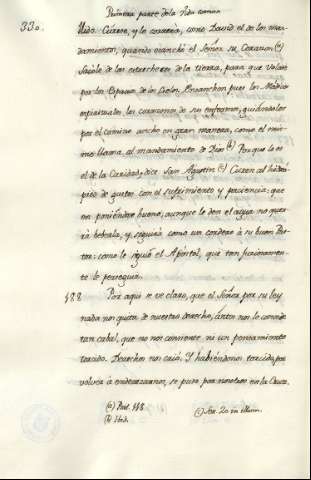 330. Primera parte de la Vida comun
lido. Curese, y lo correrà, como David el de los man-
damientos, quando ensanchò el Señor su Corazon (a)
Sacòle de las estrechezes de la tierra, para que volase
por los Espacios de los Cielos. Ensanchen pues los Medicos
espirituales los corazones de sus enfermos, guiandolos
por el camino ancho en gran manera, como el mis-
mo llama al mandamiento de Dios (b) Porque la es
el de la Caridad, dice San Agustin (c) Curen al hidró-
pico de gustos con el sufrimiento y paciencia: que
en poniendose bueno, aunque le den el agua no quer-
rà beberla, y seguirà como un cordero à su buen Pas-
tor: como le siguiò el Apostol, que tan furiosamen-
te le perseguia.
188 Por aqui se ve claro, que el Señor por su ley
nada nos quita de nuestro derecho, antes nos lo concede
tan cabal, que no nos consiente ni un pensamiento
torcido. Derechos nos criò. Y habiendonos torcido, por
volver à enderezarnos, se puso por nosotros en la Cruz.
(a) Psal. 118.
(b) Ibid.